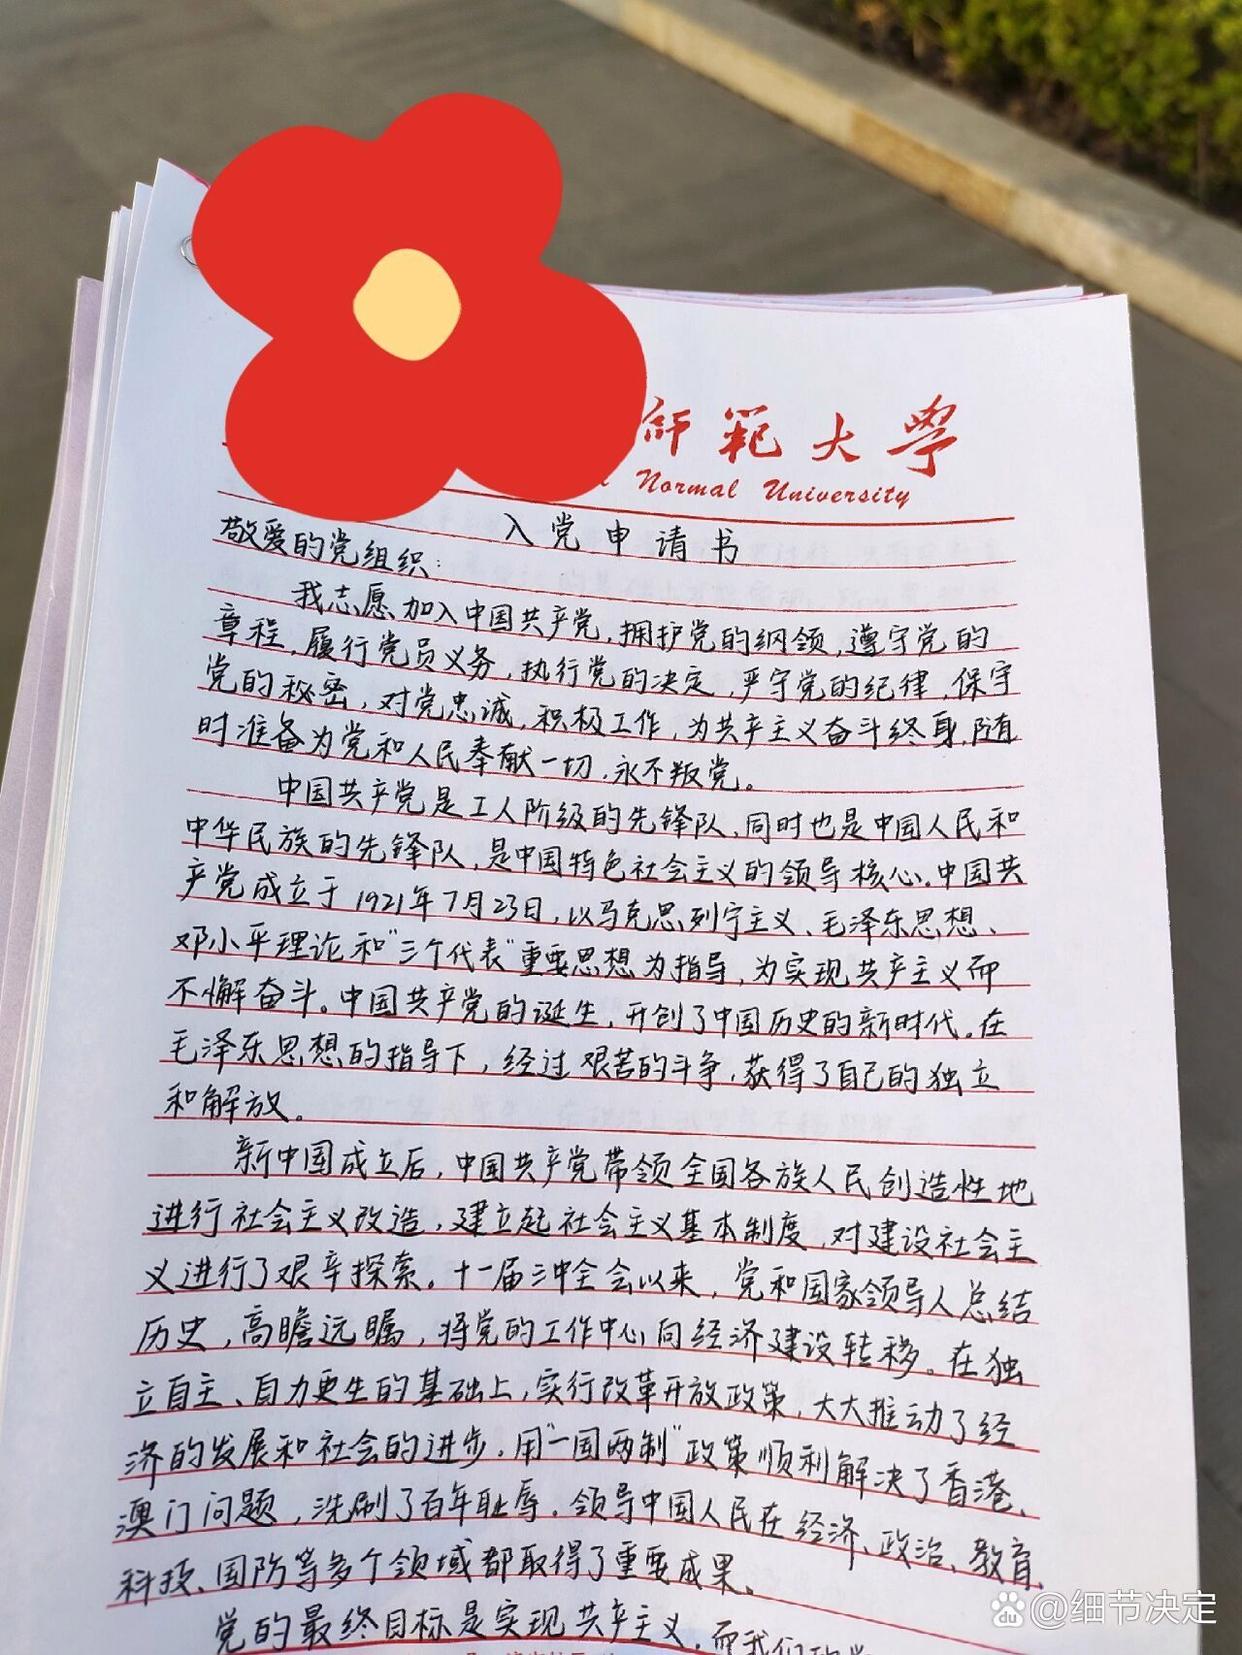 师範大學
Normal University
入党申请书
敬爱的党组织:
我志愿加入中国共产党,拥护党的纲领,遵守党的
章程,履行党员义务,执行党的决定,严守党的纪律,保守
党的秘密,对党忠诚,积极工作,为共产主义奋斗终身,随
时准备为党和人民奉献一切,永不叛党。
中国共产党是工人阶级的先锋队,同时也是中国人民和
中华民族的先锋队,是中国特色社会主义的领导核心。中国共
产党成立于1921年7月23日,以马克思列宁主义、毛泽东思想、
邓小平理论和“三个代表”重要思想为指导,为实现共产主义而
不懈奋斗。中国共产党的诞生,开创了中国历史的新时代。在
毛泽东思想的指导下,经过艰苦的斗争,获得了自己的独立
和解放。
新中国成立后,中国共产党带领全国各族人民创造性地
进行社会主义改造,建立起社会主义基本制度,对建设社会主
义进行了艰辛探索。十一届三中全会以来,党和国家领导人总结
历史,高瞻远瞩,将党的工作中心向经济建设转移。在独
立自主、自力更生的基础上,实行改革开放政策,大大推动了经
济的发展和社会的进步。用“一国两制”政策顺利解决了香港、
澳门问题,洗刷了百年耻辱。领导中国人民在经济、政治、教育、
科技、国防等多个领域都取得了重要成果。
党的最终目标是实现共产主义,而我们
du @细节决定